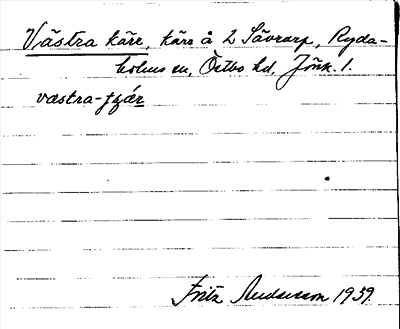 Västra kärr, kärr å 2 Sävrarp, Ryda-
holms sn, Östbo hd, Jönk. l.
västra-tɟær
Fritz Andersson 1939.